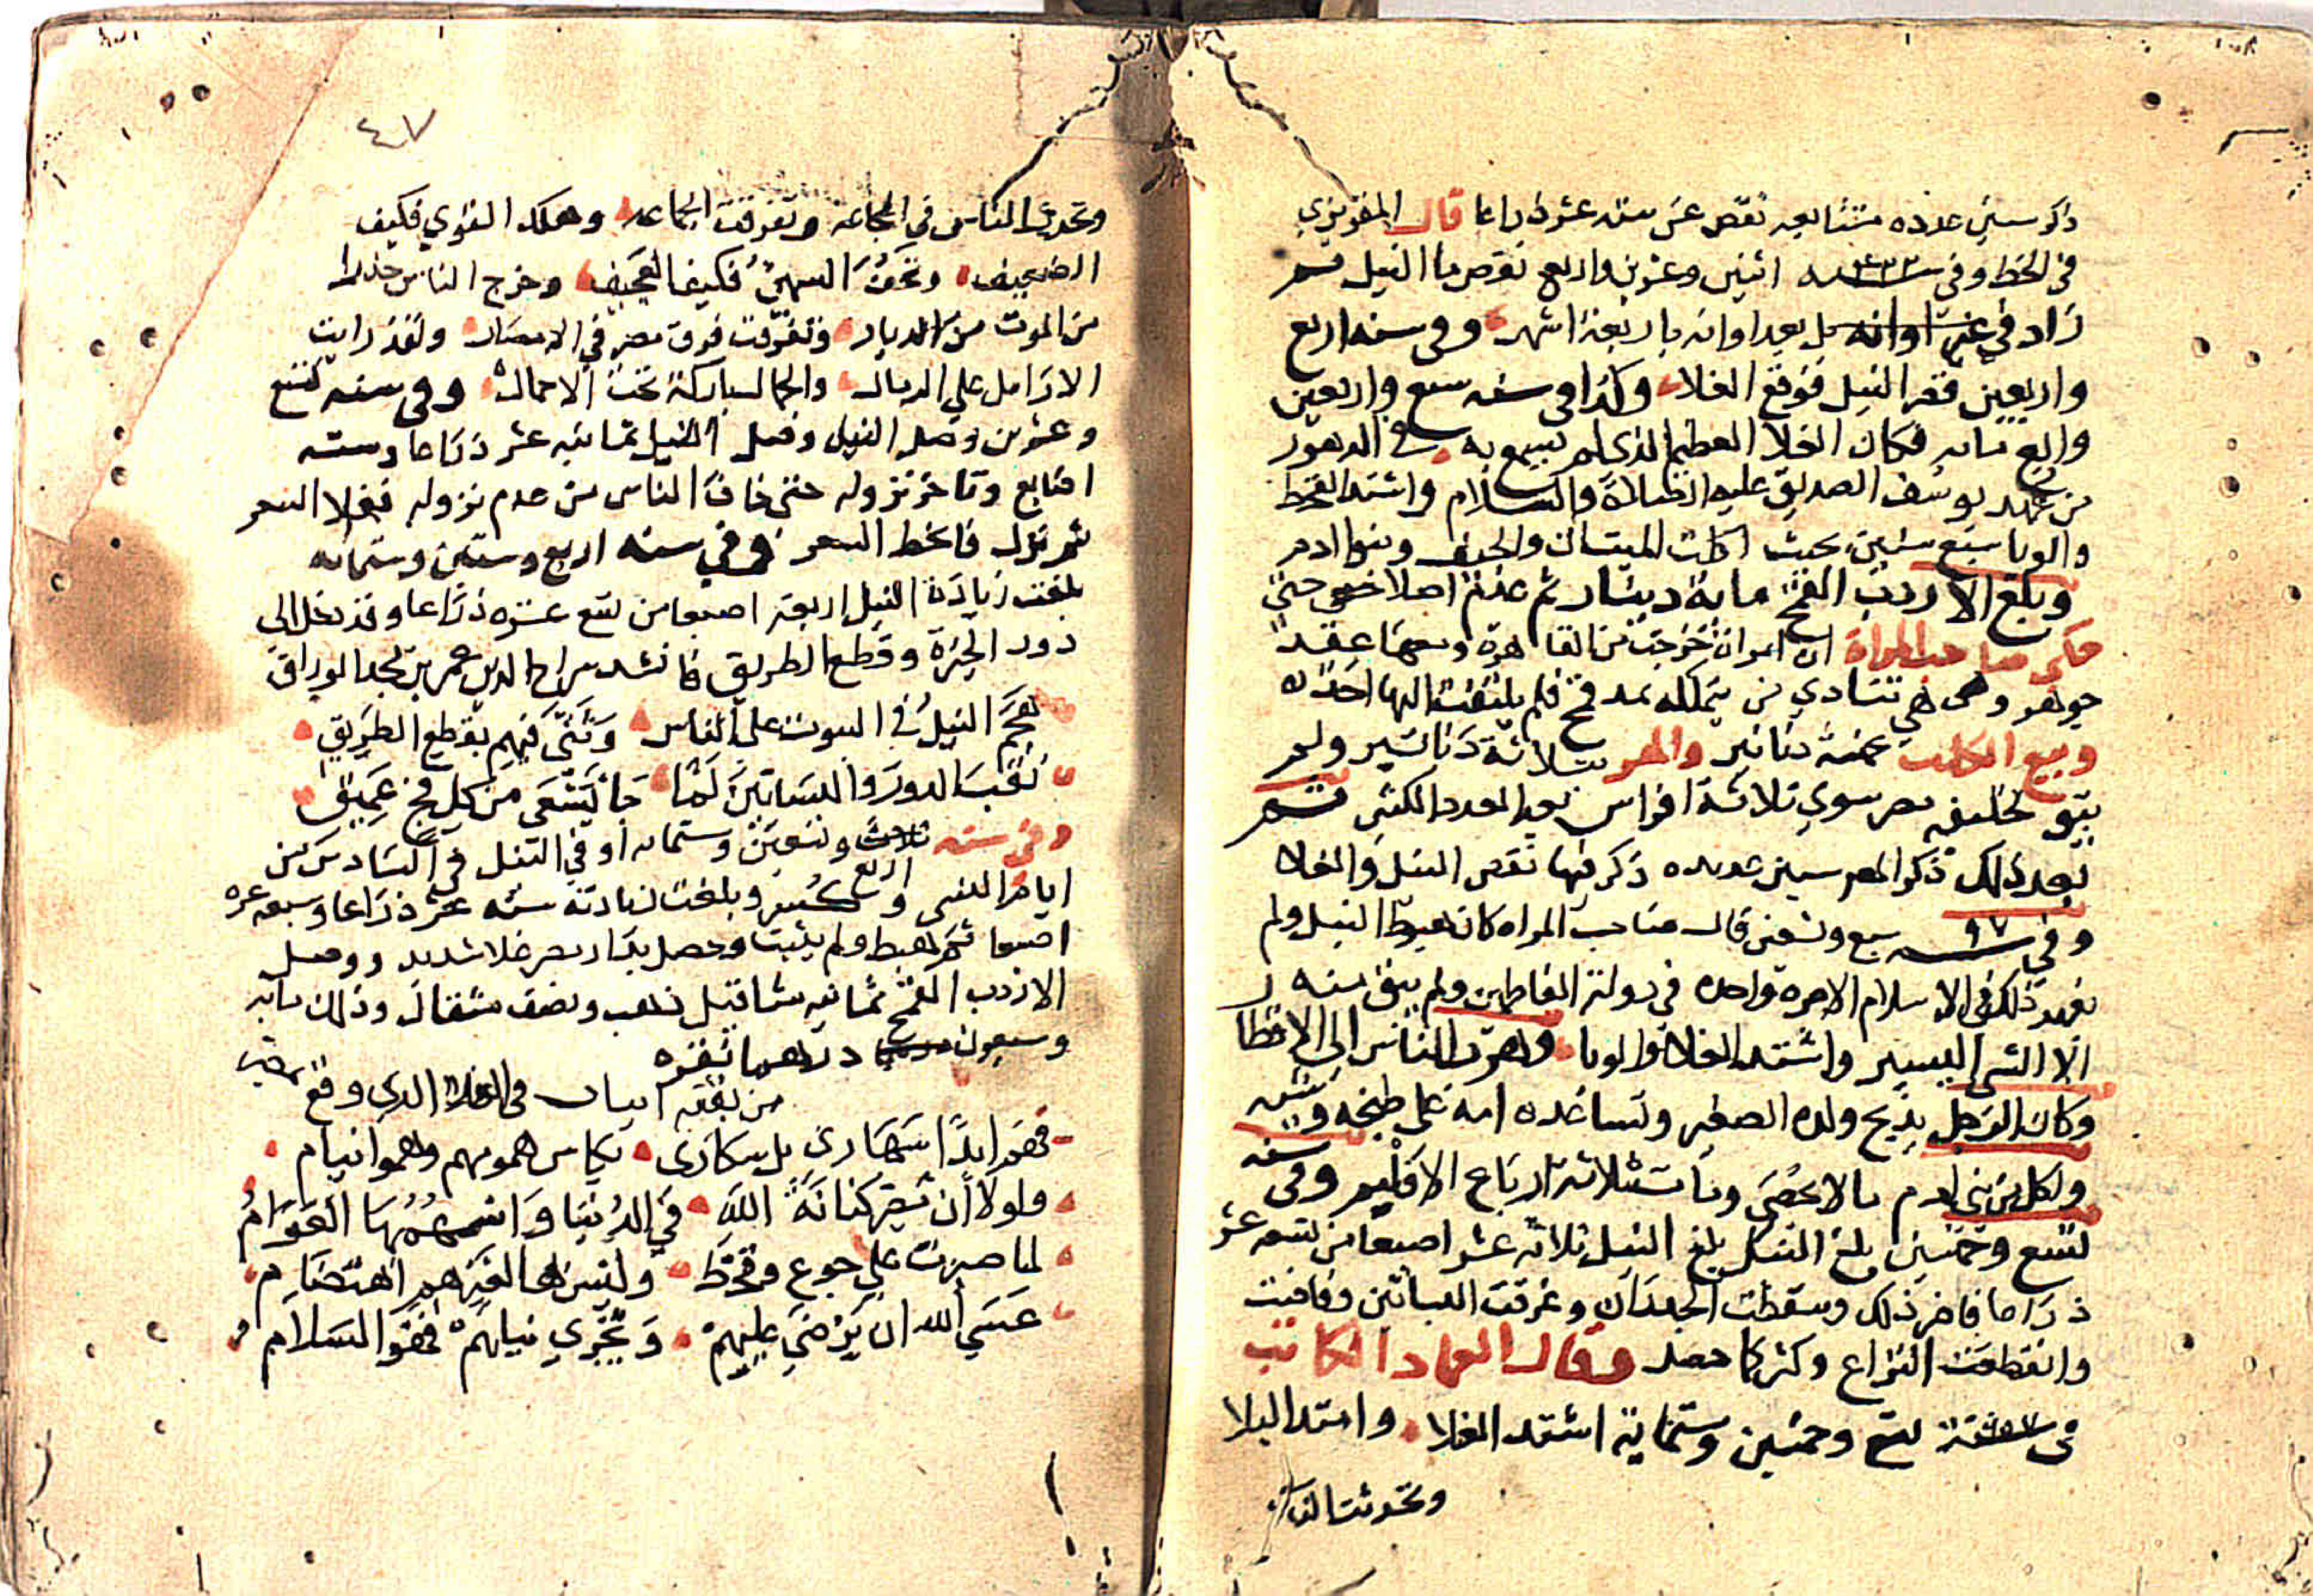 ذكر سنين عديده متتابعه نقص عن سته عشر ذراعا قال المقريزي
في الخطط وفي سنه اثنين وعشرين واربع نقص ما النيل ثم
زاد في غير اوانه بل بعد اوانه باربعة اشهر وفي سنه اربع
واربعين قصر النيل فوقع الغلا وكذا في سنه سبع واربعين
واربع مائه فكان الغلا العظيم الذي لم يسمع به في الدهور
من عهد يوسف الصديق عليه الصلاة والسلام واشتد القحط
والوبا سبع سنين بحيث اكلت الميتات والجيف وبنوا ادم
وبلغ الاردب القمح مائة دينار ثم عدم اصلا حتى
حكى صاحب المراة ان امراة خرجت من القاهرة ومعها عقد
جوهر وهي تنادي من يمكله بمد قمح فلم يلتفت اليها احد
وبيع الكلب بخمسة دنانير والهر بثلاثة دنانير ولم
يبق لخليفه مصر سوي ثلاثة افراس بعد العدد الكثير ثم
بعد ذلك ذكر سنين عديده ذكر فيها نقص النيل والغلا
وفي سنه ٩٧ سبع وتسعين قال صاحب المراه كان هبوط النيل ولم
يعهد ذلك في الاسلام الا مرة واحده في دولة الفاطمين ولم يبق منه
الا الشي اليسير واشتد الغلا والوبا وهرب الناس الي الاقطار
وكان الرجل يذبح ولده الصغير وتساعده امه على طبخه وشيه
واكل من بني ادم ما لا يحصي ومات ثلاثة ارباع الاقليم وفي سنه
تسع وخمسين بلغ النيل بلغ النيل ثلاثه عشر اصبعا من تسعه عشر
ذراعا فاضر ذلك وسقطت الجدران وغرقت البساتين وفاضت
وانقطعت التراع وكثر كما حصل وقال العماد الكاتب
في سنة تسع وخمسين وستماية اشتد الغلا وامتد البلا
وتحدثت الناس
٤٧
وتحدثت الناس في المجاعه وتفرقت الجماعه وهلك القوي فكيف
الضعيف ونحف السمين فكيف العجيف وخرج الناس حذرا
من الموت من الديار وتفرقت فرق مصر في الامصار ولقد رايت
الارامل علي الرمال والجمال باركة تحت الاحمال وفي سنه تسع
وعشرين وصل النيل وصل النيل ثمانيه عشر ذراعا وسته
اصابع وتاخر نزوله حتى خاف الناس من عدم نزوله فغلا السعر
ثم نزل فانحط السعر وفي سنه اربع وستين وستمائه
بلغت زيادة النيل اربعه اصبعا من تسع عشره ذراعا وقد دخل الى
دور الجيزة وقطع الطريق فانشد سراج الدين عمر بن محمد الوراق
هجم النيل في البيوت على الناس وثنى فيهم بقطع الطريق
نقب الدور والبساتين لما جا يسعى من كل فج عميق
وفي سنه ثلاث وتسعين وستمايه اوفي النيل في السادس من
ايام النسى واربع وكسر وبلغت زيادته سته عشر ذراعا وسبعه عشره
اصبعا ثم هبط ولم يثبت وحصل بديار مصر غلا شديد ووصل
الاردب القمح ثمانيه مثاقيل ذهب ونصف مثقال وذلك مائه
وسبعون درهما نقره
من بقية ابيات في الغلا الذي وقع
فهم ابدا سهارى بل سكارى بكاس همومهم وهموا نيام
ولولا أن مصر كنانة الله في الدنيا واسهمها القوام
لما صبرت علي جوع وقحط وليس لها لغيرهم اهتضام
عسي الله ان يرضي عليهم ويجري نيلهم فهو السلام